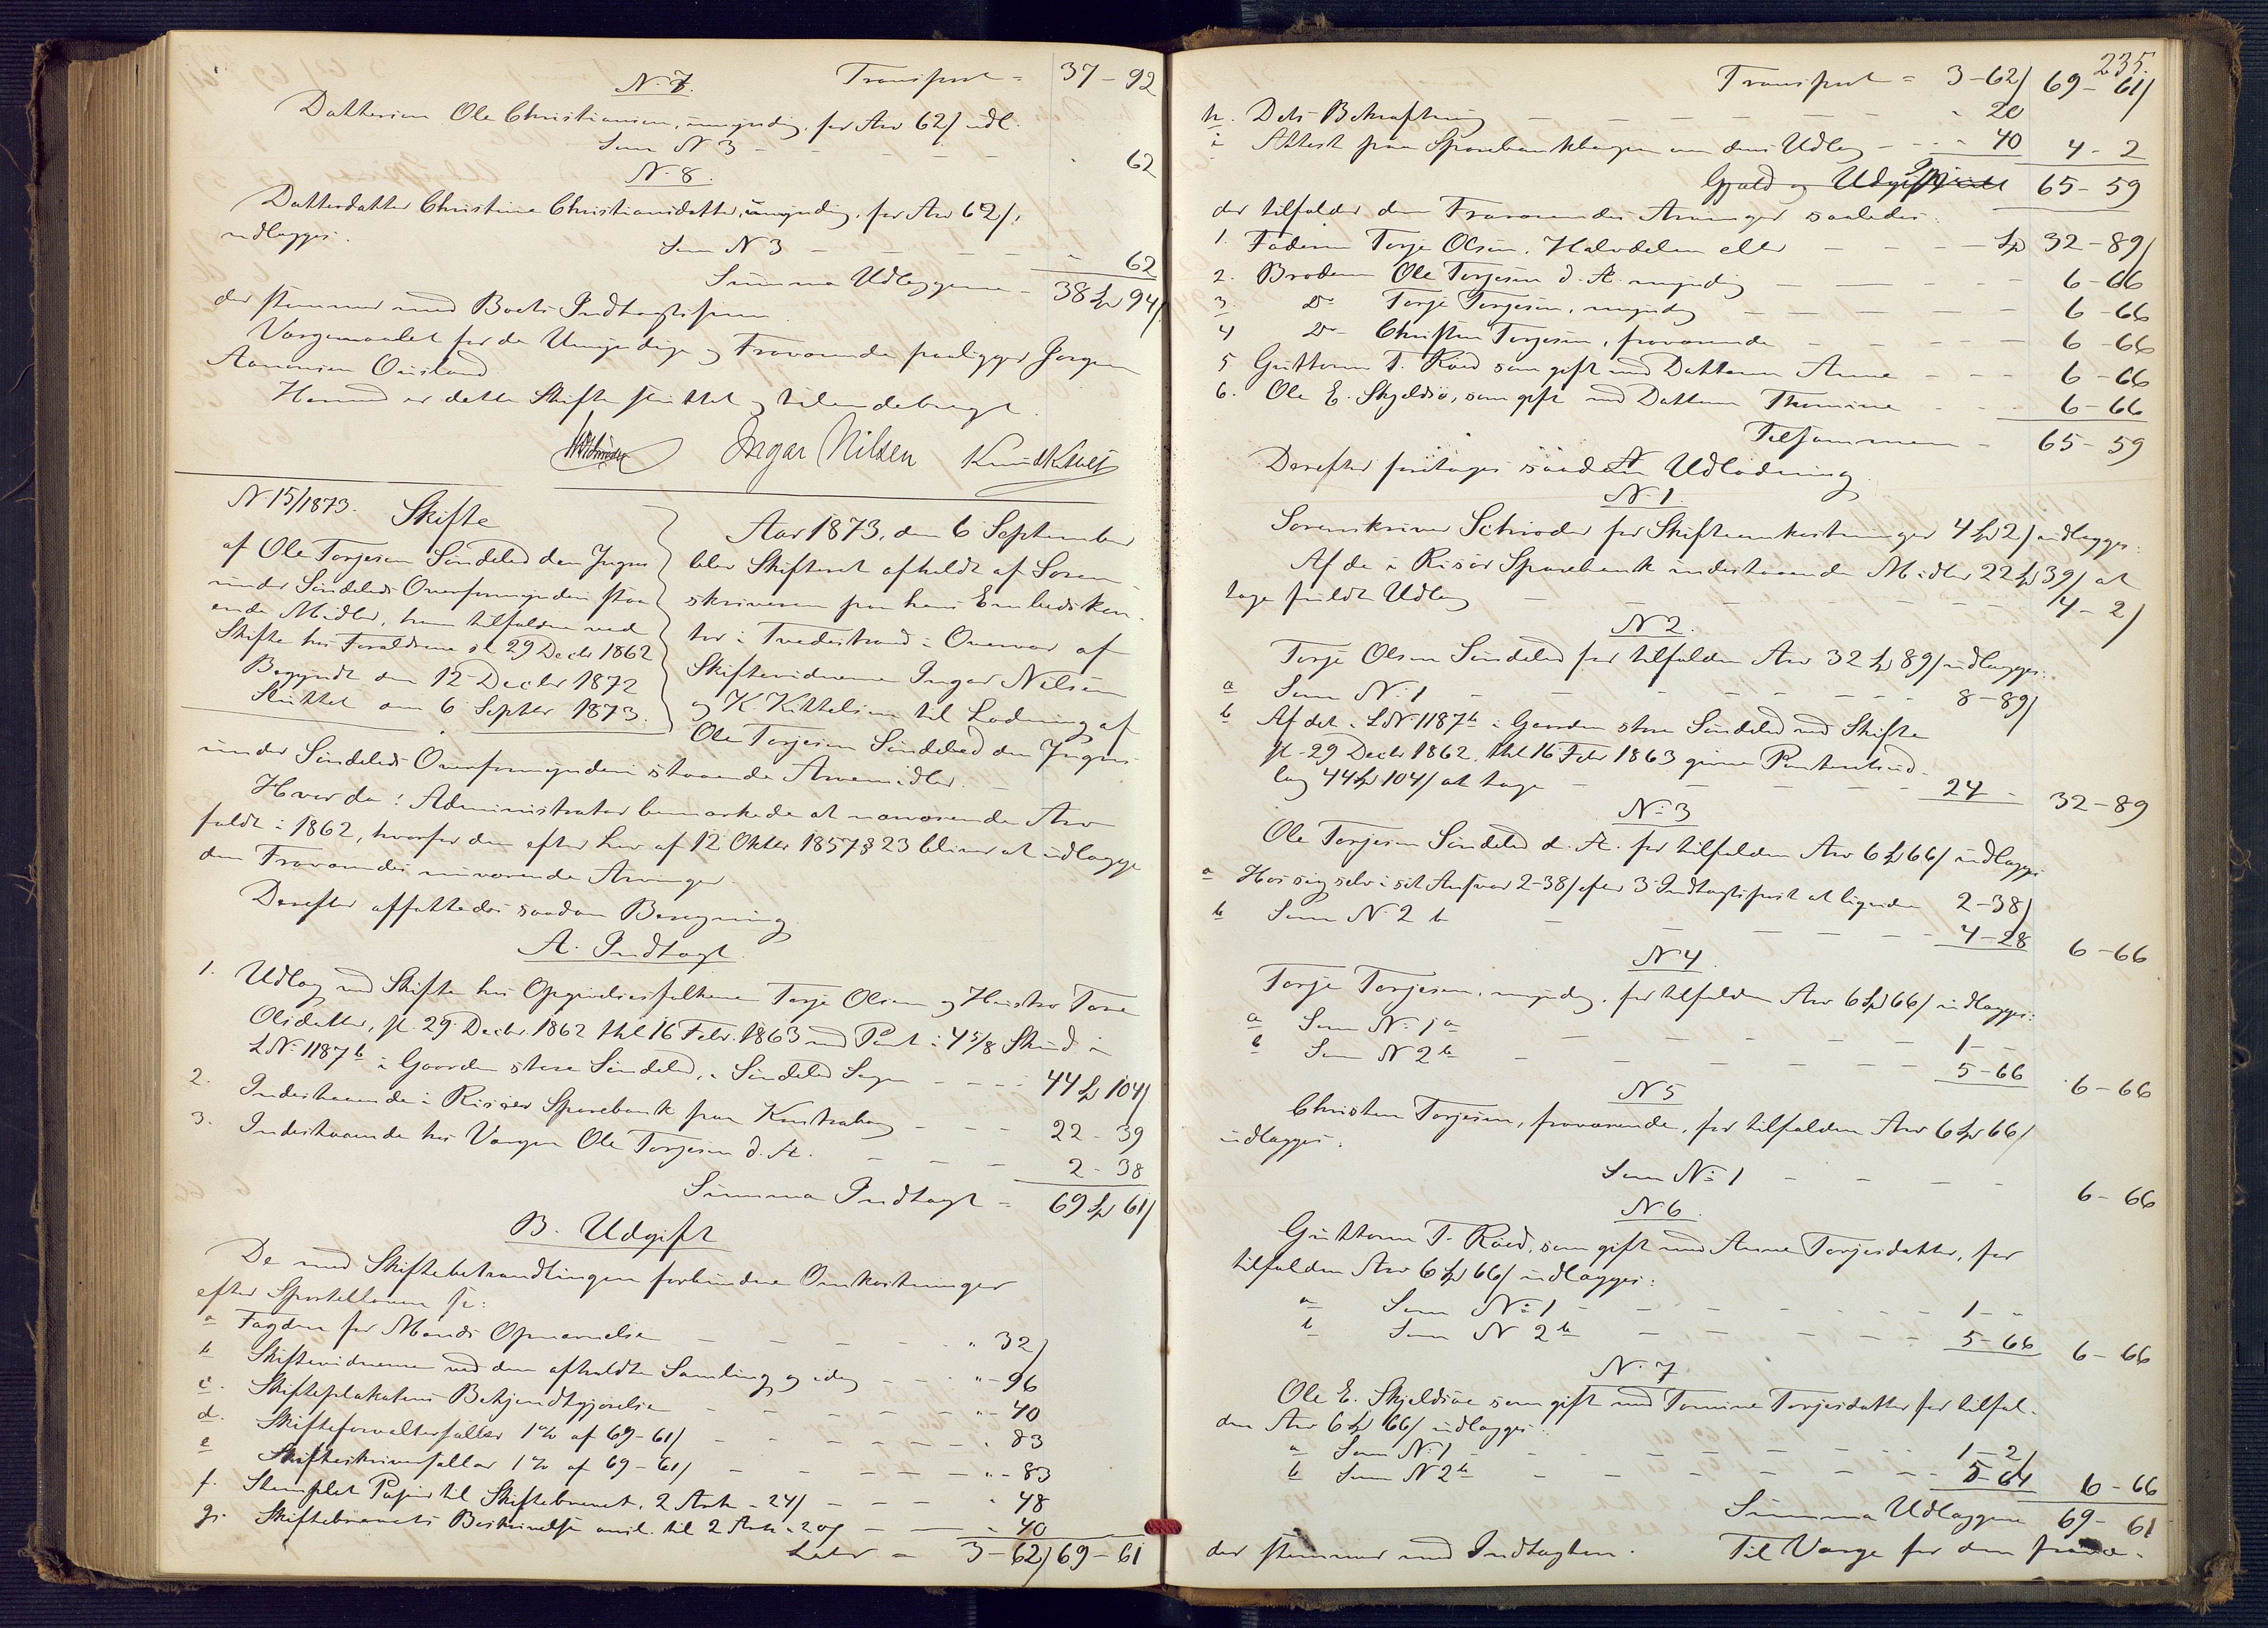 N. 7. Transport = 37 - 92
Dattersøn Ole Christiansen, umyndig, for Arv 62/ udl.
Som N 3 - - - - " 62
N. 8.
Datterdatter Christine Christiansdatter, umyndig, for Arv 62/,
udlægges:
Som N 3 - - - - " 62
Summa Udlæggene - 38 Spd 94/
der stemmer med Boets Indtægtssum.
Værgemaalet for de Umyndige og Fraværende paaligger Jørgen
Aanonsen Ousland.
Hermed er dette Skifte sluttet og tilendebragt.
Schrøder Ingar Nilsen Knud Kittels
N 15/1873. Skifte
af Ole Torjesen Søndeled den Yngres
under Søndeleds Overformynderi staa
ende Midler, ham tilfaldne ved
Skifte hos Forældrene sl. 29 Decbr 1862
Begyndt den 12 Decbr 1872
Sluttet den 6 Septbr 1873.
Aar 1873, den 6 September
blev Skifteret afholdt af Soren
skriveren paa hans Embedskon
tor i Tvedestrand i Overvær af
Skiftevidnerne Ingar Nilsen
og K. Kittelsen til Lodning af
Ole Torjesen Søndeled den Yngres
under Søndeleds Overformynderi staaende Arvemidler. -
Hvorda: Administrator bemærkede at nærværende Arv
faldt i 1862, hvorfor den efter Lov af 12 Oktbr 1857 § 23 bliver at udlægge
den Fraværendes nuværende Arvinger.
Derefter affattedes saadan Beregning
A. Indtægt.
1. Udlæg ved Skifte hos Opgivelsesfolkene Torje Olsen og Hustro Tone
Olsdatter, sl. 29 Decbr. 1862 thl 16 Febr. 1863 med Pant i 4 5/8 Skind i
LNo. 1187 b i Gaarden store Søndeled, i Søndeled Sogn - - - 44 Spd 104/
2. Indestaaende i Risøer Sparebank paa Kontrabog - - - 22 - 39
3. Indestaaende hos Værgen Ole Torjesen d. Æ. - - - 2 - 38
Summa Indtægt = 69 Spd 61/
B. Udgift
De med Skiftebehandlingen forbundne Omkostninger
efter Sportelloven
a Fogden for Mænds Opnævnelse - - - - " 32/
b Skiftevidnerne ved den afholdte Samling og idag - - - " - 96
c. Skifteplakatens Bekjendtgjørelse - - - - " - 40
d. Skifteforvaltersallær 1% af 69-61/ - - - - " 83
e Skifteskriversallær 1% af 69-61/ - - - - " - 83
f. Stemplet Papir til Skiftebrevet, 2 Ark a 24/ - - - " 48
g. Skiftebrevets Beskrivelse ansl. til 2 Ark a 20/ - - " 40
Later = 3 - 62/ 69 - 61
235.
Transport = 3 - 62/ 69 - 61/
h. Dets Bekræftning - - - - - " 20
i Attest paa Sparebankbogen om dens Udlæg - - - 40 4 - 2
Gjæld og Udgift 65 - 59
der tilfalder den Fraværendes Arvinger saaledes:
1. Faderen Torje Olsen, Halvdelen eller - - - - Spd 32 - 89/
2. Broderen Ole Torjesen d. Æ. myndig - - - - 6 - 66
3. Do Torje Torjesen, myndig - - - - 6 - 66
4 Do - Christen Torjesen, fraværende - - - - 6 - 66
5 Guttorm T. Røed som gift med Datteren Anne - - - 6 - 66
6. Ole E. Skjeldsø, som gift med Datteren Thomine - - 6 - 66
Tilsammen - 65 - 59
Derefter foretoges saadan Udlodning.
N. 1.
Sorenskriver Schrøder for Skifteomkostninger 4 Spd 2/ udlægges:
Af de i Risør Sparebank indestaaende Midler 22 Spd 39/ at
tage fuldt Udlæg - - - - - 4 - 2/
N 2.
Torje Olsen Søndeled for tilfalden Arv 32 Spd 89/ udlægges:
a Som No. 1 - - - - - 8 - 89/
b Af det i LNo. 1187 b i Gaarden store Søndeled ved Skifte
sl. 29 Decbr 1862, thl 16 Febr 1863 givne Panteretsud
læg 44 Spd 104/ at tage - - - - 24 - 32 - 89
No. 3
Ole Torjesen Søndeled d. Æ. for tilfalden Arv 6 Spd 66/ udlægges
a Hos sig selv i sit Ansvar 2-38/ efter 3 Indtægtspost at ligvidere 2-38/
b Som N. 2 b - - - - - 4 - 28 6 - 66
N 4.
Torje Torjesen, myndig, for tilfalden Arv 6 Spd 66/ udlægges:
a Som No. 1 a - - - - 1 -
b Som N 2 b - - - - 5 - 66 6 - 66
N 5
Christen Torjesen, fraværende, for tilfalden Arv 6 Spd 66/
udlægges:
Som No. 1 - - - - 6 - 66
N 6.
Guttorm T. Røed, som gift med Anne Torjesdatter, for
tilfalden Arv 6 Spd 66/ udlægges:
a Som No. 1 - - - - 1 - "
b Som N 2 b - - - - 5 - 66 6 - 66
N. 7
Ole E. Skjeldsøe som gift med Tomine Torjesdatter for tilfal-
den Arv 6 Spd 66/ udlægges:
a Som No. 1 - - - - 1 - 2/
b Som N 2 b - - - - 5 - 64 6 - 66
Summa Udlæggene 69 - 61
der stemmer med Indtægten. Til Værge for den fravæ-